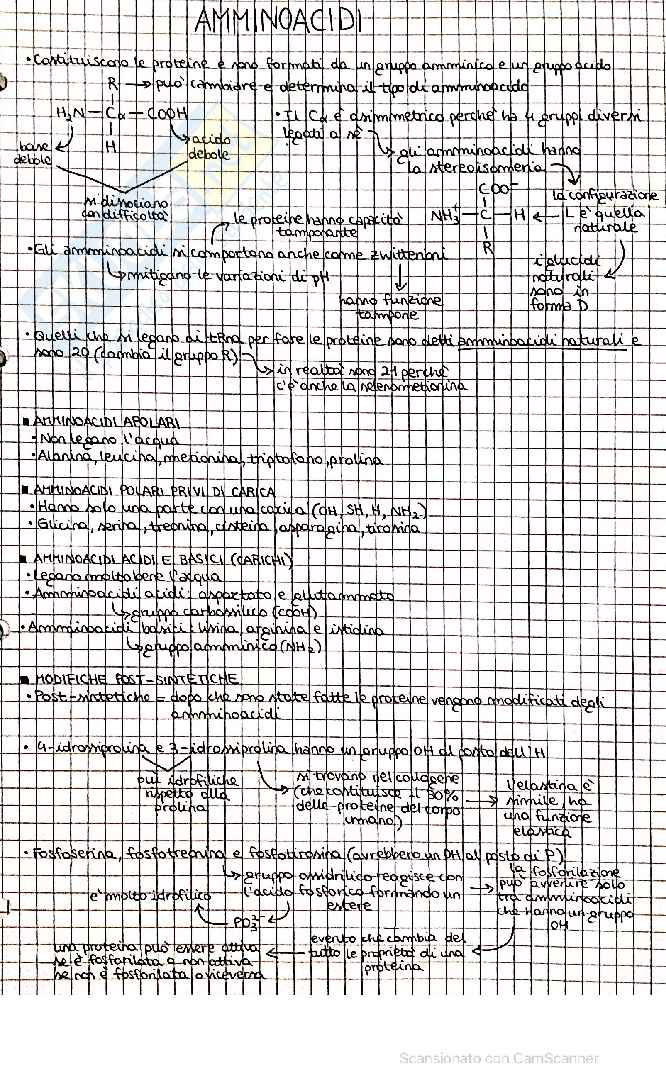 AMMINOACIDI
• Costituiscono le proteine e sono formati da un gruppo amminico e un gruppo acido
R → può cambiare e determina il tipo di amminoacido
H₂N — Cα — COOH
H
base debole
acido debole
si dissociano con difficoltà
• Il Cα è asimmetrico perché ha 4 gruppi diversi
legati a sé
gli amminoacidi hanno
la stereoisomeria
la configurazione
L è quella
naturale
COO⁻
NH₃⁺ — C — H
R
i glucidi
naturali
sono in
forma D
le proteine hanno capacità
tamponante
• Gli amminoacidi si comportano anche come zwitterioni
mitigano le variazioni di pH
hanno funzione
tampone
• Quelli che si legano ai tRna per fare le proteine sono detti amminoacidi naturali e
sono 20 (cambia il gruppo R)
in realtà sono 21 perché
c'è anche la selenometionina
■ AMMINOACIDI APOLARI
• Non legano l'acqua
• Alanina, leucina, metionina, triptofano, prolina
■ AMMINOACIDI POLARI PRIVI DI CARICA
• Hanno solo una parte con una carica (OH, SH, H, NH₂)
• Glicina, serina, treonina, cisteina, asparagina, tirosina
■ AMMINOACIDI ACIDI E BASICI (CARICHI)
• Legano molto bene l'acqua
• Amminoacidi acidi: aspartato e glutammato
gruppo carbossilico (COOH)
• Amminoacidi basici: lisina, arginina e istidina
gruppo amminico (NH₂)
■ MODIFICHE POST-SINTETICHE
• Post-sintetiche = dopo che sono state fatte le proteine vengono modificati degli
amminoacidi
• 4-idrossiprolina e 3-idrossiprolina hanno un gruppo OH al posto dell'H
più idrofiliche
rispetto alla
prolina
si trovano nel collagene
(che costituisce il 30%
delle proteine del corpo
umano)
l'elastina è
simile, ha
una funzione
elastica
• Fosfoserina, fosfotreonina e fosfotirosina (avrebbero un OH al posto di P)
gruppo ossidrilico reagisce con
l'acido fosforico formando un
estere
la fosforilazione
può avvenire solo
tra amminoacidi
che hanno un gruppo
OH
è molto idrofilico
PO₃²⁻
evento che cambia del
tutto le proprietà di una
proteina
una proteina può essere attiva
se è fosforilata o non attiva
se non è fosforilata o viceversa
Scansionato con CamScanner